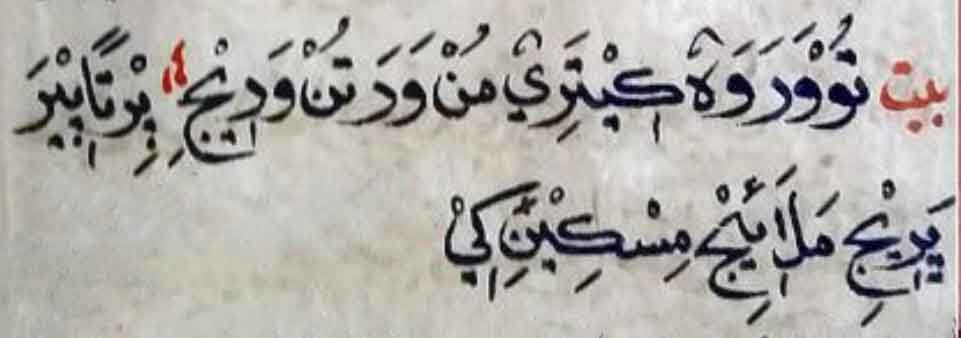 بيت تُوْوَرَوَة كِيْتَرِيْ مُنْ وَرَتُنْ وَرِيْجِ؛ بِرْتَابِيْرَ
يَرِيْجِ مَلَائِيْجْ مِسْكِيْنَِّكِيْ